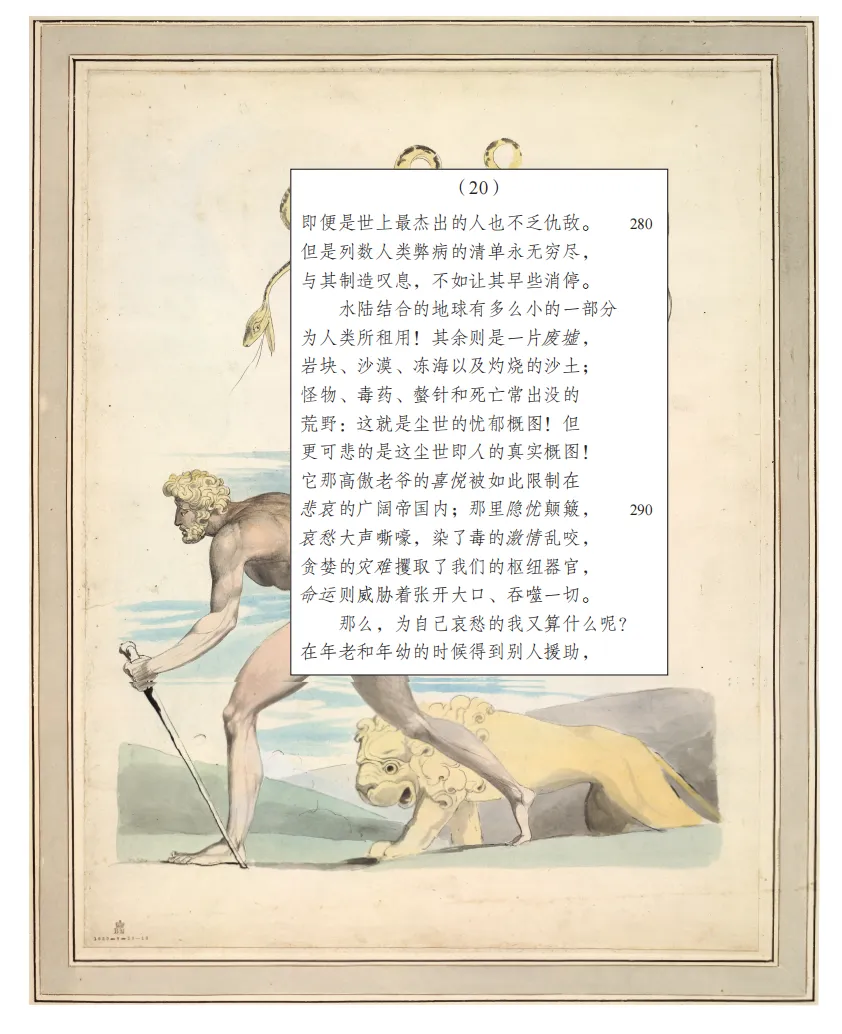 （20）
即便是世上最杰出的人也不乏仇敌。 280
但是列数人类弊病的清单永无穷尽，
与其制造叹息，不如让其早些消停。
水陆结合的地球有多么小的一部分
为人类所租用！其余则是一片废墟，
岩块、沙漠、冻海以及灼烧的沙土；
怪物、毒药、螫针和死亡常出没的
荒野：这就是尘世的忧郁概图！但
更可悲的是这尘世即人的真实概图！
它那高傲老爷的喜悦被如此限制在
悲哀的广阔帝国内；那里隐忧颠簸， 290
哀愁大声嘶嚎，染了毒的激情乱咬，
贪婪的灾难攫取了我们的枢纽器官，
命运则威胁着张开大口、吞噬一切。
那么，为自己哀愁的我又算什么呢？
在年老和年幼的时候得到别人援助，